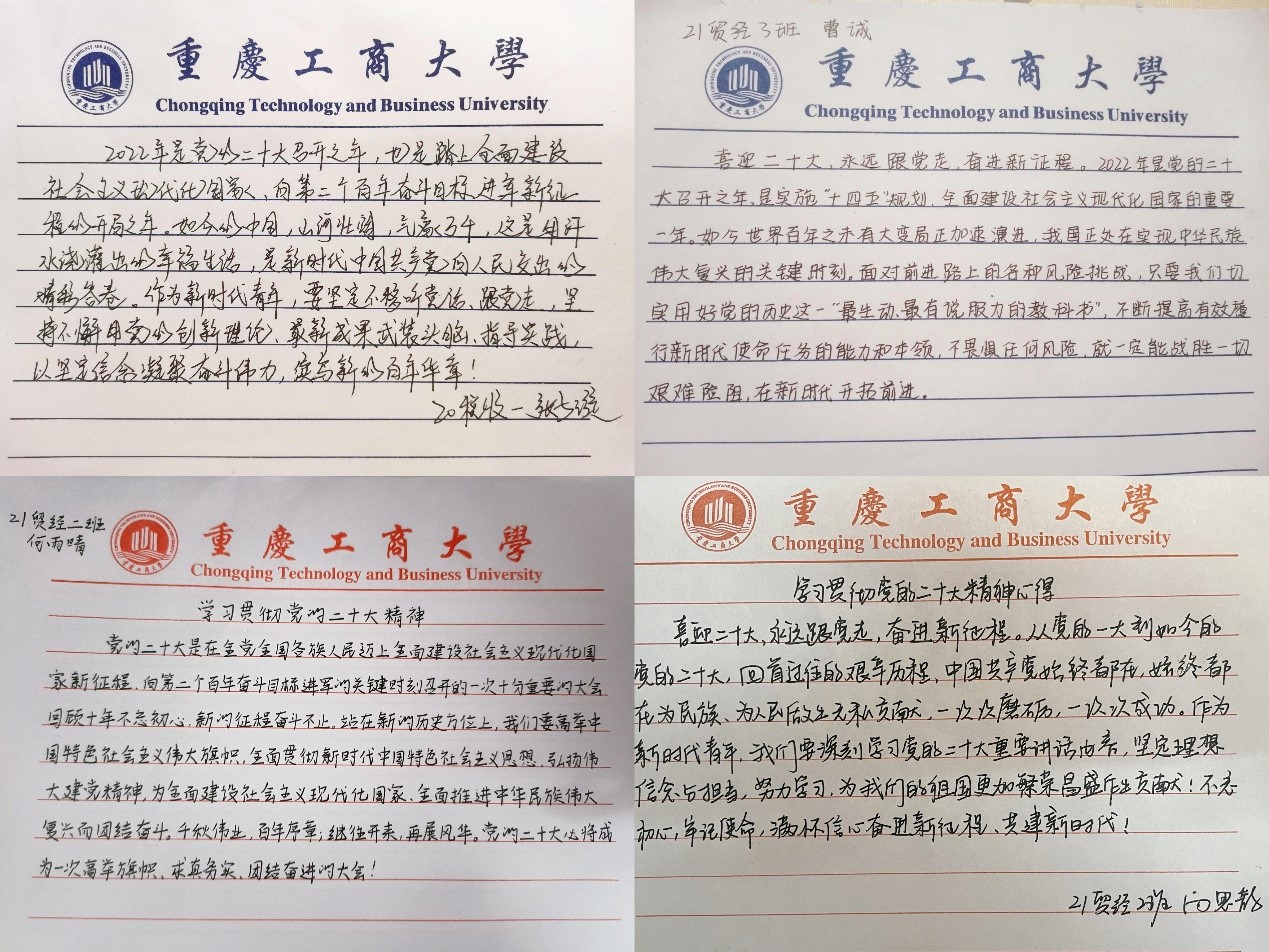 重慶工商大學
Chongqing Technology and Business University
2022年是党的二十大召开之年，也是踏上全面建设
社会主义现代化国家、向第二个百年奋斗目标进军新征
程的开局之年。如今的中国，山河壮阔，气象万千，这是用汗
水浇灌出的幸福生活，是新时代中国共产党向人民交出的
精彩答卷。作为新时代青年，要坚定不移听党话、跟党走，坚
持不懈用党的创新理论、最新成果武装头脑、指导实践，
以坚定信念凝聚奋斗伟力，续写新的百年华章！
20税收一
21贸经3班 曹诚
重慶工商大學
Chongqing Technology and Business University
喜迎二十大，永远跟党走，奋进新征程。2022年是党的二十
大召开之年，是实施“十四五”规划，全面建设社会主义现代化国家的重要
一年。如今世界百年之未有大变局正加速演进，我国正处在实现中华民族
伟大复兴的关键时刻。面对前进路上的各种风险挑战，只要我们切
实用好党的历史这一“最生动、最有说服力的教科书”，不断提高有效履
行新时代使命任务的能力和本领，不畏惧任何风险，就一定能战胜一切
艰难险阻，在新时代开拓前进。
21贸经二班
何雨晴
重慶工商大學
Chongqing Technology and Business University
学习贯彻党的二十大精神
党的二十大是在全党全国各族人民迈上全面建设社会主义现代化国
家新征程、向第二个百年奋斗目标进军的关键时刻召开的一次十分重要的大会
回顾十年不忘初心，新的征程奋斗不止。站在新的历史方位上，我们要高举中
国特色社会主义伟大旗帜，全面贯彻新时代中国特色社会主义思想，弘扬伟
大建党精神，为全面建设社会主义现代化国家、全面推进中华民族伟大
复兴而团结奋斗。千秋伟业，百年序章；继往开来，再展风华。党的二十大必将成
为一次高举旗帜、求真务实、团结奋进的大会！
重慶工商大學
Chongqing Technology and Business University
学习贯彻党的二十大精神心得
喜迎二十大，永远跟党走，奋进新征程。从党的一大到如今的
党的二十大，回首过往的艰辛历程，中国共产党始终都在，始终都
在为民族、为人民做出无私贡献，一次次磨砺，一次次成功。作为
新时代青年，我们要深刻学习党的二十大重要讲话内容，坚定理想
信念与担当，努力学习，为我们的祖国更加繁荣昌盛作出贡献！不忘
初心，牢记使命，满怀信心奋进新征程、共建新时代！
21贸经2班 向思